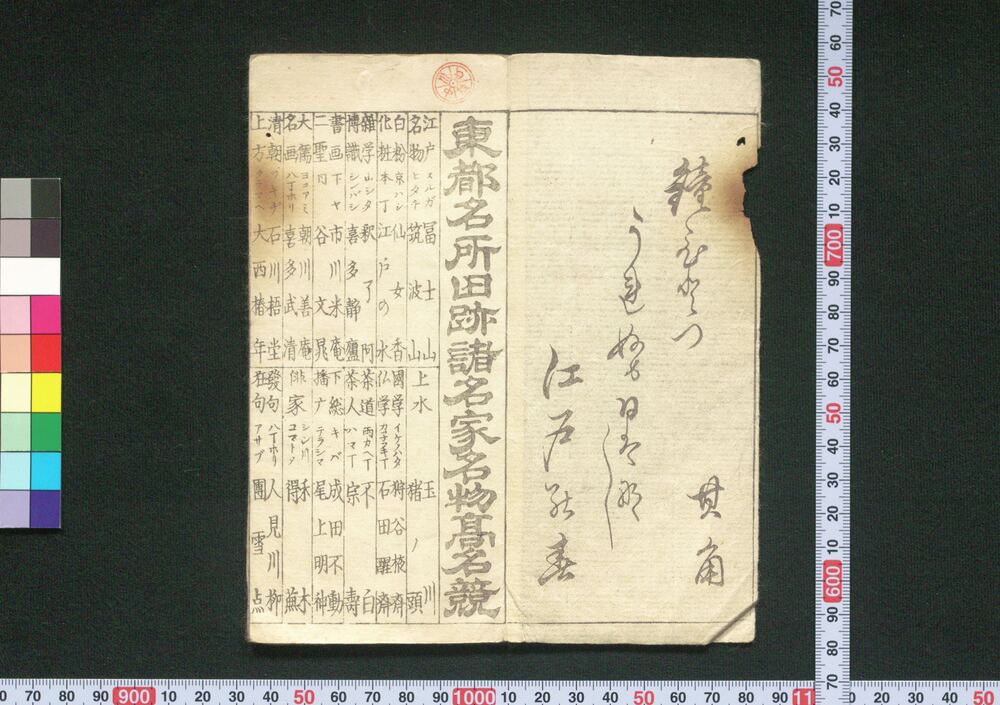 其角
鐘ひとつ
うれぬ日はなし
江戸の春
東都名所旧跡諸名家名物高名競
江戸 スルガ 冨士山
名物 ヒタチ 筑波山
白粉 京ハシ 仙女香
化粧 本丁 江戸の水
雜学 山シタ 釈了阿
博識 シンバシ 喜多静廬
書画 下ヤ 市川米庵
二聖 同 谷文晁
大儒 ヨコアミ 朝川善庵
名画 八丁ホリ 喜多武清
清朝 石川梧堂
上方 クラマヘ 大西椿年
上水 玉川
猪ノ頭
國学 イケノハタ 狩谷棭斎
仏学 石田醒斎
茶道 両カヘ丁 不白
茶人 ハマ丁 宗壽
下総 キバ 成田不動
播ナ テラシマ 尾上明神
俳家 シン川 禾木
コマトメ 得蕪
發句 八丁ホリ 人見川柳
狂句 アサブ 團雪点